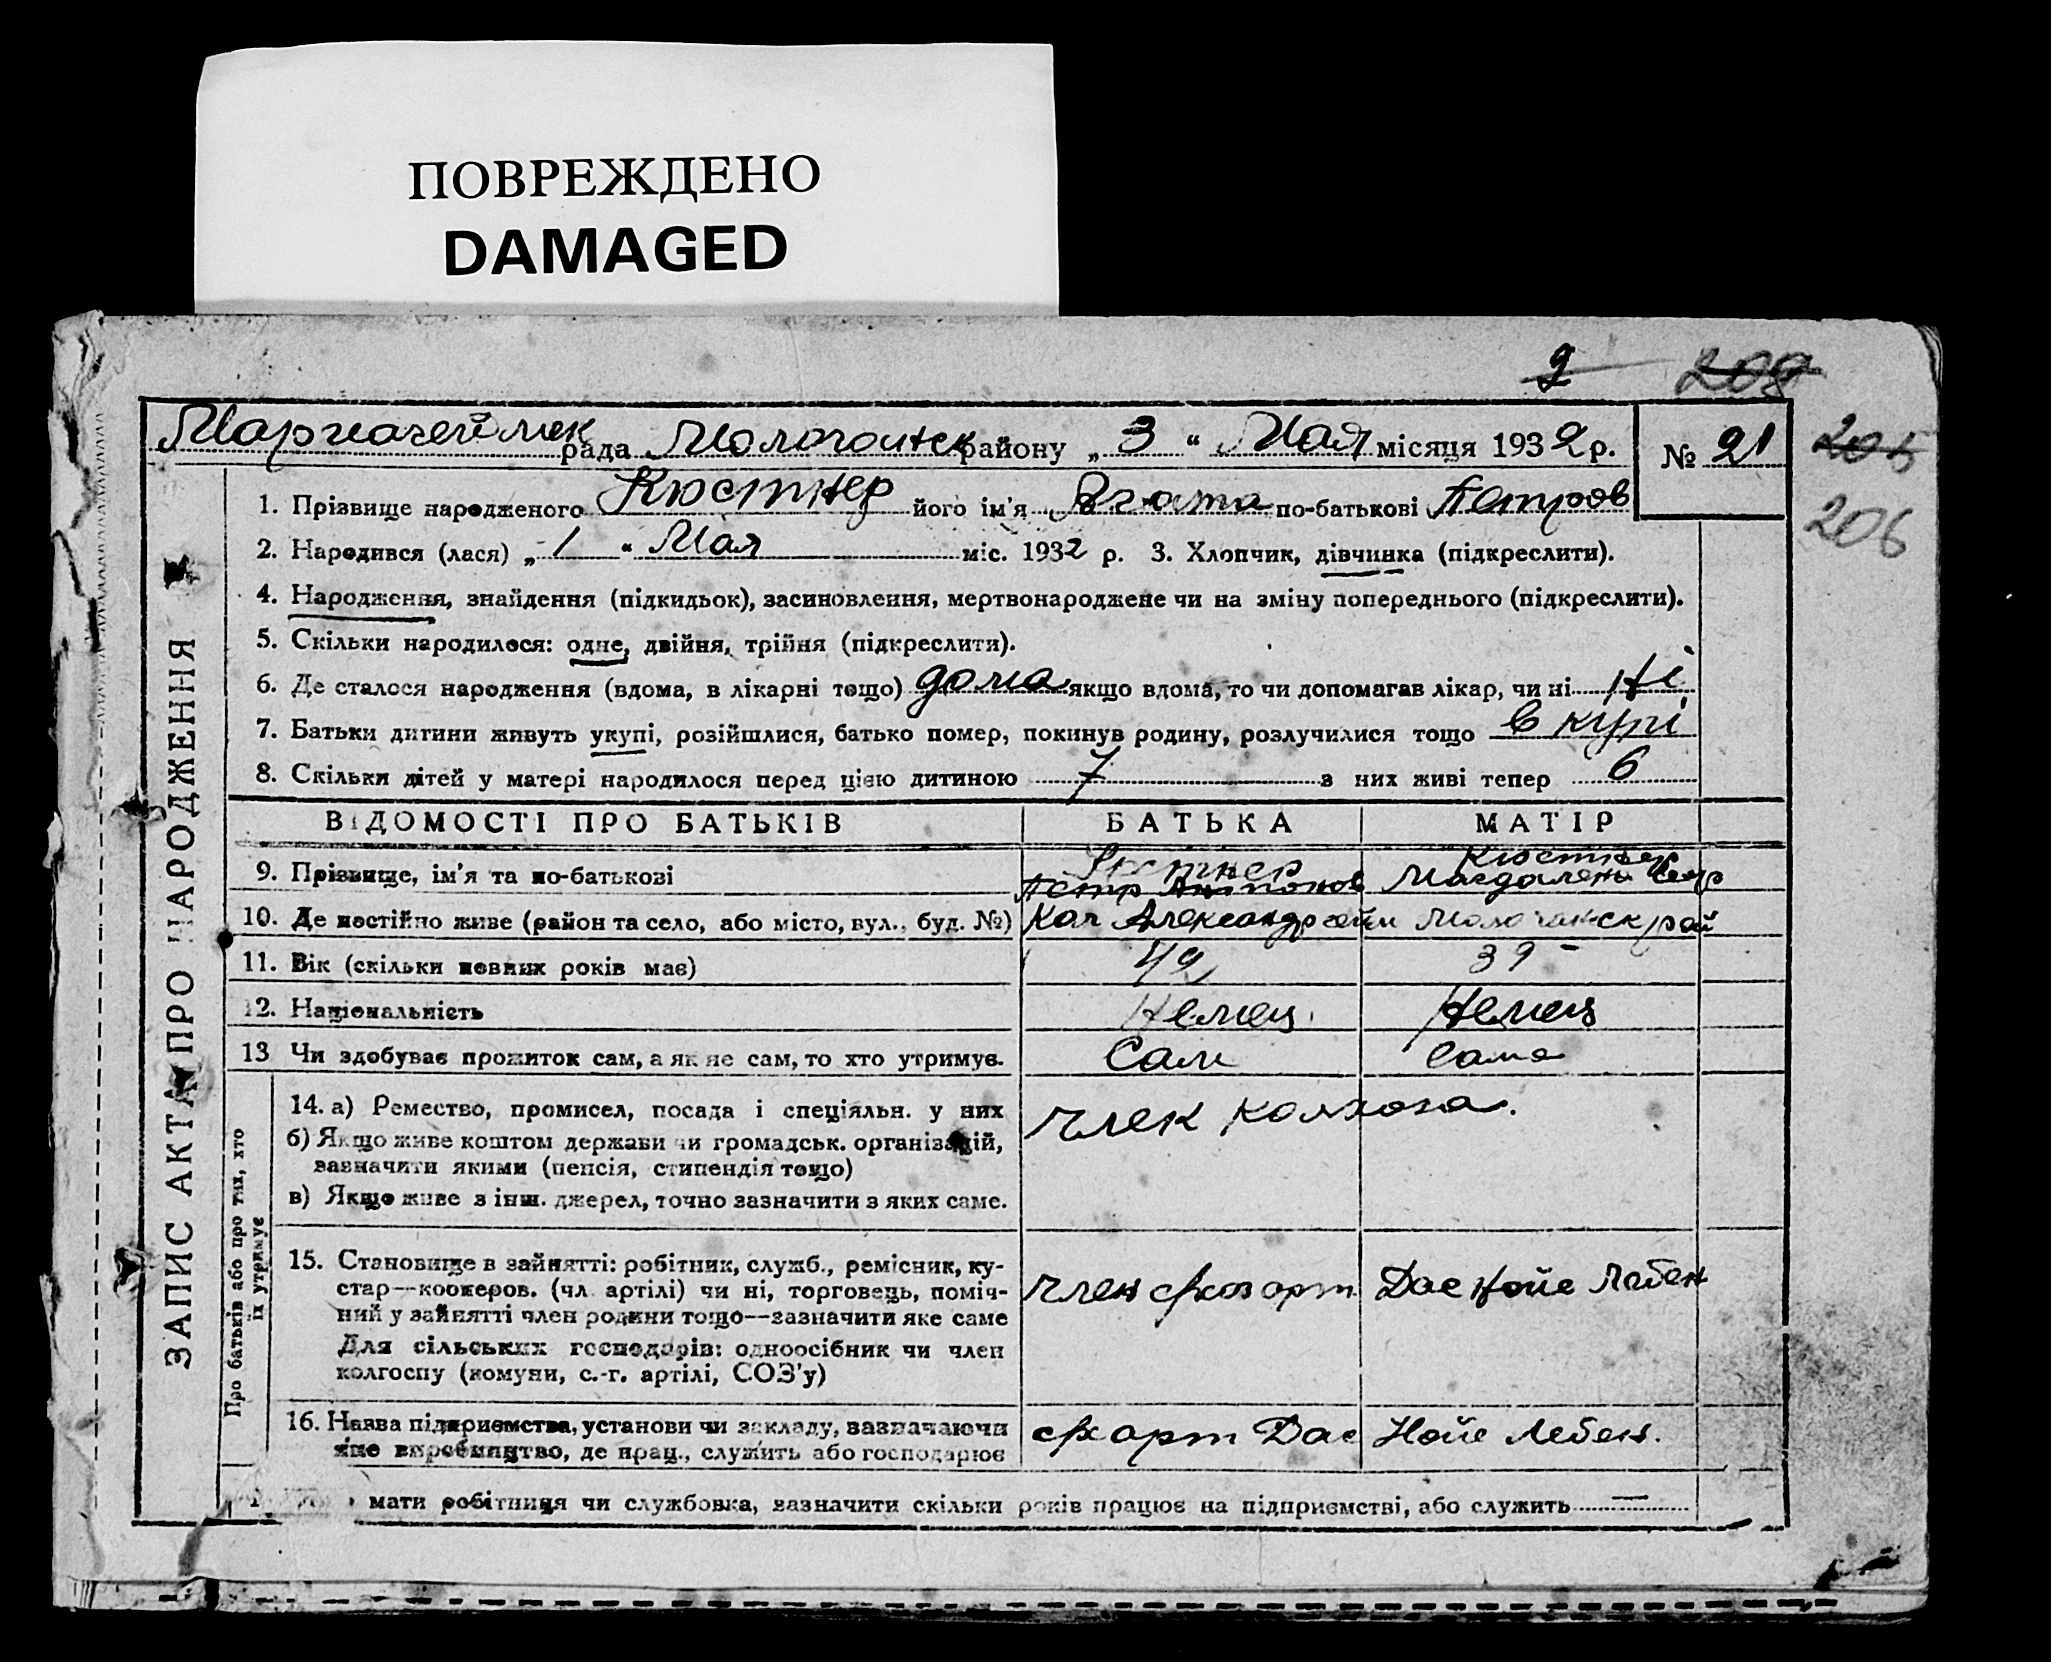 ПОВРЕЖДЕНО
DAMAGED
9 208
рада Молочанск району „ 3 “ Мая місяця 1932 р. № 21
205
206
1. Прізвище народженого Кюстнер його ім'я Агата по-батькові Петров
2. Народився (лася) „ 1 “ Мая міс. 1932 р. 3. Хлопчик, дівчинка (підкреслити).
4. Народження, знайдення (підкидьок), засиновлення, мертвонароджене чи на зміну попереднього (підкреслити).
5. Скільки народилося: одне, двійня, трійня (підкреслити).
6. Де сталося народження (вдома, в лікарні тощо) дома якщо вдома, то чи допомагав лікар, чи ні Ні
7. Батьки дитини живуть укупі, розійшлися, батько помер, покинув родину, розлучилися тощо в купі
8. Скільки дітей у матері народилося перед цією дитиною 7 з них живі тепер 6
ВІДОМОСТІ ПРО БАТЬКІВ БАТЬКА МАТІР
9. Прізвище, ім'я та по-батькові Кюстнер Петр Антонов Кюстнер Магдалена
10. Де постійно живе (район та село, або місто, вул., буд. №) Кол Александргейм Молочанск рай
11. Вік (скільки повних років має) 49 39
12. Національність Немец Немец
13 Чи здобуває прожиток сам, а як не сам, то хто утримує. Сам Сама
14. а) Ремество, промисел, посада і спеціяльн. у них член колхоза.
б) Якщо живе коштом держави чи громадськ. організацій,
зазначити якими (пенсія, стипендія тощо)
в) Якщо живе з інш. джерел, точно зазначити з яких саме.
15. Становище в зайнятті: робітник, служб., ремісник, ку-
стар—кооперов. (чл. артілі) чи ні, торговець, поміч- член схоз арт Дас Нойе Лебен
ний у зайнятті член родини тощо—зазначити яке саме
Для сільських господарів: одноосібник чи член
колгоспу (комуни, с.-г. артілі, СОЗ'у)
16. Назва підприємства, установи чи закладу, зазначаючи
яке виробництво, де прац., служить або господарює сх арт Дас Нойе Лебен.
мати робітниця чи службовка, зазначити скільки років працює на підприємстві, або служить —
ЗАПИС АКТА ПРО НАРОДЖЕННЯ
Про батьків або про тих, хто
їх утримує